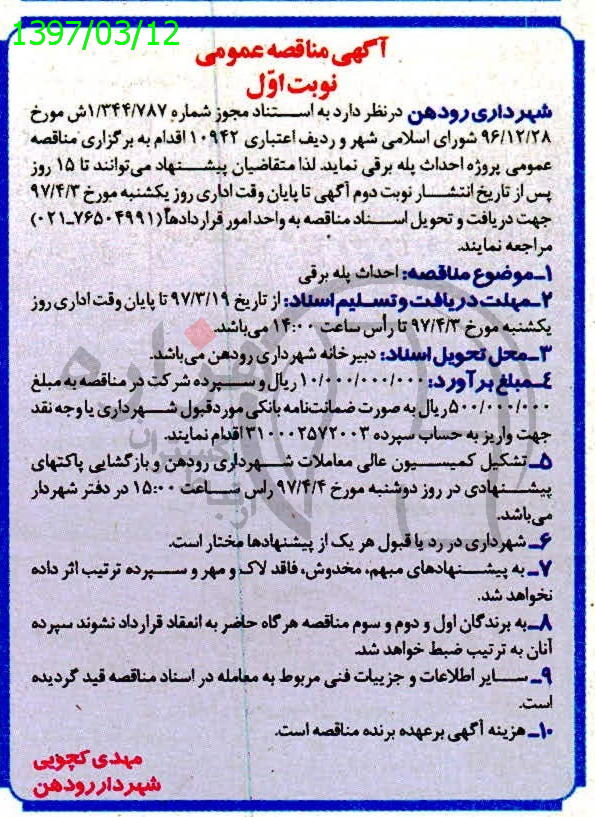 1397/03/12
آگهی مناقصه عمومی
نوبت اوّل
شهرداری رودهن در نظر دارد به استناد مجوز شماره ۱/۳۴۴/۷۸۷ش مورخ
۹۶/۱۲/۲۸ شورای اسلامی شهر و ردیف اعتباری ۱۰۹۴۲ اقدام به برگزاری مناقصه
عمومی پروژه احداث پله برقی نماید. لذا متقاضیان پیشنهاد می‌توانند تا ۱۵ روز
پس از تاریخ انتشار نوبت دوم آگهی تا پایان وقت اداری روز یکشنبه مورخ ۹۷/۴/۳
جهت دریافت و تحویل اسناد مناقصه به واحد امور قراردادها (۷۶۵۰۴۹۹۱-۰۲۱)
مراجعه نمایند.
۱ـ موضوع مناقصه: احداث پله برقی
۲ـ مهلت دریافت و تسلیم اسناد: از تاریخ ۹۷/۳/۱۹ تا پایان وقت اداری روز
یکشنبه مورخ ۹۷/۴/۳ تا رأس ساعت ۱۴:۰۰ می‌باشد.
۳ـ محل تحویل اسناد: دبیرخانه شهرداری رودهن می‌باشد.
٤ـ مبلغ برآورد: ۱۰/۰۰۰/۰۰۰/۰۰۰ ریال و سپرده شرکت در مناقصه به مبلغ
۵۰۰/۰۰۰/۰۰۰ ریال به صورت ضمانت‌نامه بانکی مورد قبول شهرداری یا وجه نقد
جهت واریز به حساب سپرده ۳۱۰۰۰۲۵۷۲۰۰۳ اقدام نمایند.
۵ـ تشکیل کمیسیون عالی معاملات شهرداری رودهن و بازگشایی پاکتهای
پیشنهادی در روز دوشنبه مورخ ۹۷/۴/۴ راس ساعت ۱۵:۰۰ در دفتر شهردار
می‌باشد.
۶ـ شهرداری در رد یا قبول هر یک از پیشنهادها مختار است.
۷ـ به پیشنهادهای مبهم، مخدوش، فاقد لاک و مهر و سپرده ترتیب اثر داده
نخواهد شد.
۸ـ به برندگان اول و دوم و سوم مناقصه هرگاه حاضر به انعقاد قرارداد نشوند سپرده
آنان به ترتیب ضبط خواهد شد.
۹ـ سایر اطلاعات و جزییات فنی مربوط به معامله در اسناد مناقصه قید گردیده
است.
۱۰ـ هزینه آگهی برعهده برنده مناقصه است.
مهدی کچویی
شهردار رودهن